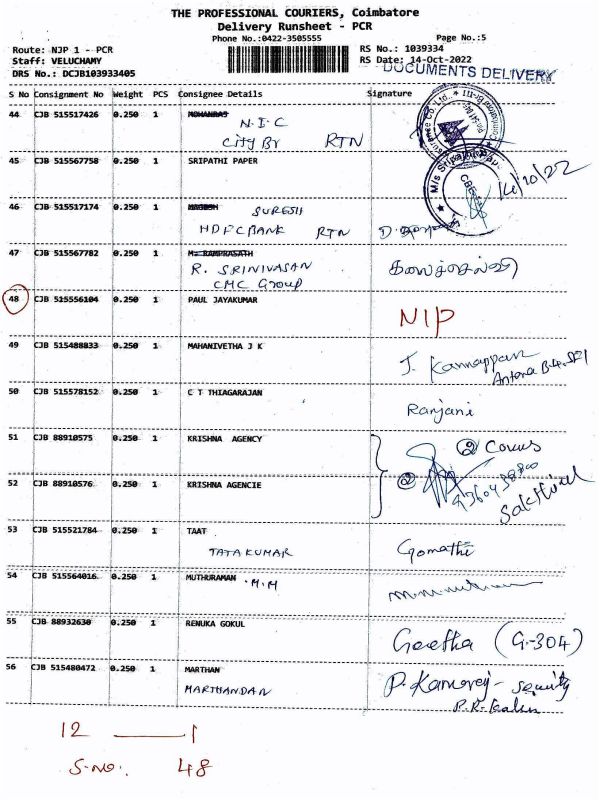 THE PROFESSIONAL COURIERS, Coimbatore
Delivery Runsheet - PCR
Phone No.:0422-3505555 Page No.:5
Route: NJP 1 - PCR RS No.: 1039334
Staff: VELUCHAMY RS Date: 14-Oct-2022
DRS No.: DCJB103933405 DOCUMENTS DELIVERY
S No Consignment No Weight PCS Consignee Details Signature
44 CJB 515517426 0.250 1 MOHANRAJ
N.I.C
City Br RTN
45 CJB 515567758 0.250 1 SRIPATHI PAPER
M/s Sripathi Pap
14/10/22
46 CJB 515517174 0.250 1
SURESH
HDFC BANK RTN
47 CJB 515567782 0.250 1 M. RAMPRASATH
R. SRINIVASAN கலைச்செல்வி
CMC Group
48 CJB 515556104 0.250 1 PAUL JAYAKUMAR
NIP
49 CJB 515488833 0.250 1 MAHANIVETHA J K
J. Kannappan
50 CJB 515578152 0.250 1 C T THIAGARAJAN
Ranjani
51 CJB 88910575 0.250 1 KRISHNA AGENCY
52 CJB 88910576 0.250 1 KRISHNA AGENCIE
Sakthivel
53 CJB 515521784 0.250 1 TAAT
TATA KUMAR Gomathi
54 CJB 515564016 0.250 1 MUTHURAMAN M.M
55 CJB 88932630 0.250 1 RENUKA GOKUL
Geetha (G-304)
56 CJB 515480472 0.250 1 MARTHAN
MARTHANDAN
12 — 1
S.NO: 48